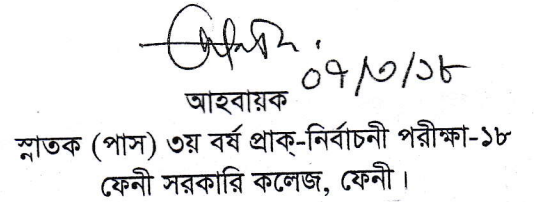 ০৭/৩/১৮
আহবায়ক
স্নাতক (পাস) ৩য় বর্ষ প্রাক্-নির্বাচনী পরীক্ষা-১৮
ফেনী সরকারি কলেজ, ফেনী।